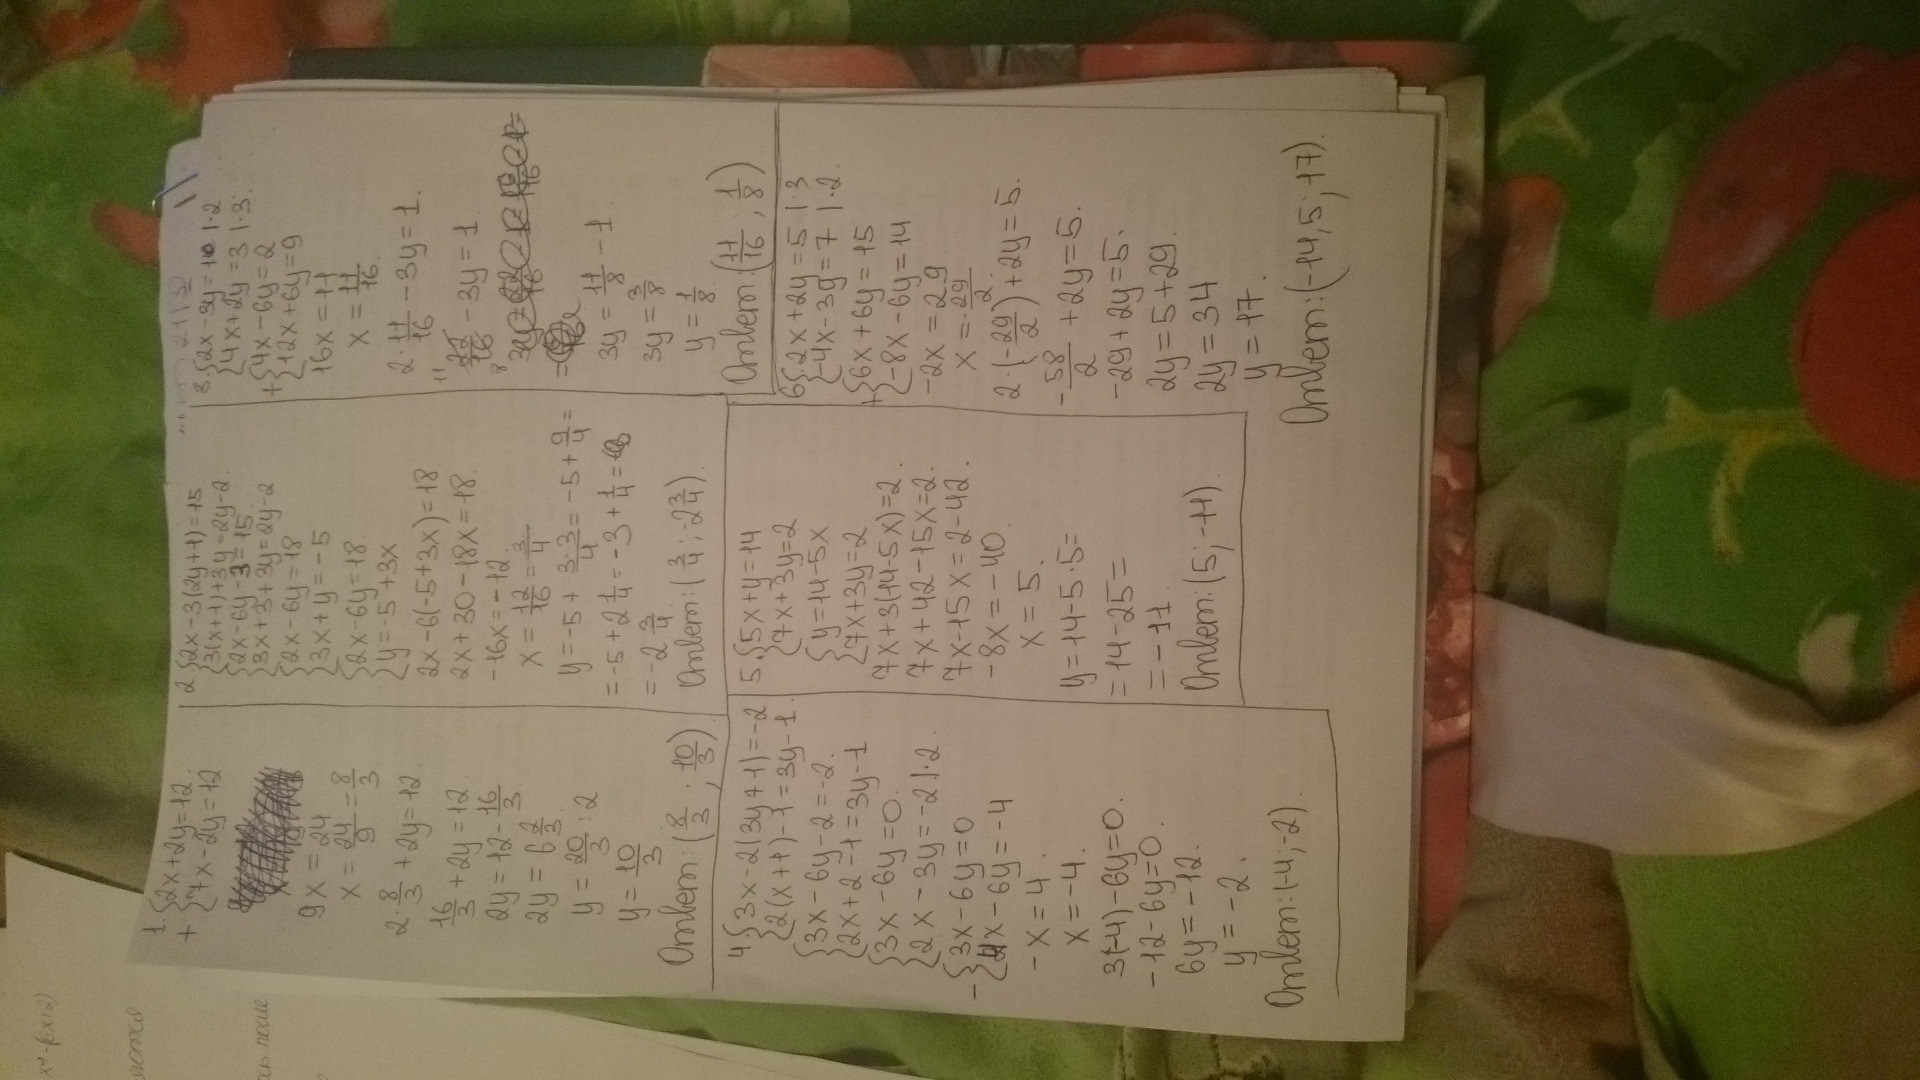 1. {2x+2y=12.
+ {7x-2y=12
9x = 24
x = 24/9 = 8/3.
2·8/3 + 2y = 12.
16/3 + 2y = 12
2y = 12 - 16/3
2y = 6 2/3
y = 20/3 : 2
y = 10/3
Ответ: (8/3 ; 10/3)
2 {2x-3(2y+1)=15
{3(x+1)+3y=2y-2.
{2x-6y-3=15.
{3x+3+3y=2y-2
{2x-6y=18
{3x+y=-5
{2x-6y=18.
{y=-5+3x
2x-6(-5+3x)=18.
2x+30-18x=18.
-16x=-12.
x = 12/16 = 3/4
y = -5 + 3·3/4 = -5 + 9/4 =
= -5 + 2 1/4 = -3 + 1/4 =
= -2 3/4
Ответ: (3/4 ; -2 3/4).
3. {2x-3y=1 |·2
{4x+2y=3 |·3.
+ {4x-6y=2
{12x+6y=9
16x = 11
x = 11/16.
2·11/16 - 3y = 1.
11
22/16 - 3y = 1
8
3y = 11/8 - 1
3y = 3/8
y = 1/8.
Ответ: (11/16 ; 1/8)
4. {3x-2(3y+1)=-2
{2(x+1)-1=3y-1.
{3x-6y-2=-2.
{2x+2-1=3y-1
{3x-6y=0.
{2x-3y=-2 |·2.
- {3x-6y=0
{4x-6y=-4
-x = 4.
x = -4.
3(-4)-6y=0.
-12-6y=0.
6y = -12.
y = -2.
Ответ: (-4; -2).
5. {5x+y=14
{7x+3y=2
{y=14-5x
{7x+3y=2
7x+3(14-5x)=2.
7x+42-15x=2.
7x-15x=2-42.
-8x=-40.
x = 5.
y=14-5·5=
=14-25=
=-11.
Ответ: (5; -11)
6 {2x+2y=5 |·3
{-4x-3y=7 |·2.
+ {6x+6y=15
{-8x-6y=14
-2x = 29.
x = -29/2
2·(-29/2)+2y=5.
-58/2 + 2y = 5.
-29+2y=5.
2y=5+29.
2y=34
y=17.
Ответ: (-14,5; 17).